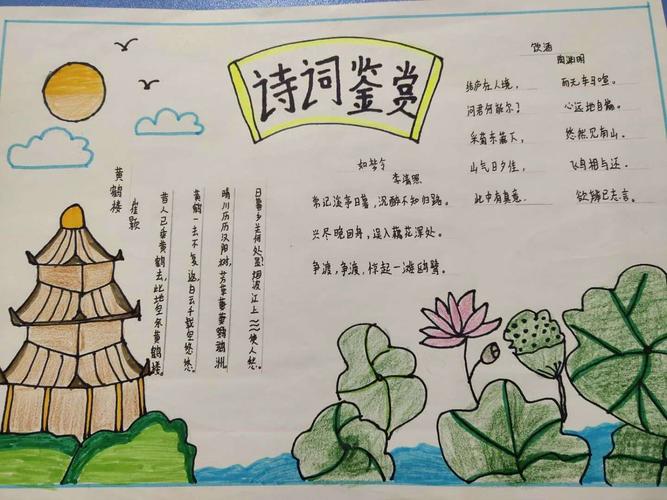 诗词鉴赏
黄鹤楼
崔颢
昔人已乘黄鹤去,此地空余黄鹤楼。
黄鹤一去不复返,白云千载空悠悠。
晴川历历汉阳树,芳草萋萋鹦鹉洲。
日暮乡关何处是?烟波江上使人愁。
如梦令
李清照
常记溪亭日暮,沉醉不知归路。
兴尽晚回舟,误入藕花深处。
争渡,争渡,惊起一滩鸥鹭。
饮酒
陶渊明
结庐在人境, 而无车马喧。
问君何能尔? 心远地自偏。
采菊东篱下, 悠然见南山。
山气日夕佳, 飞鸟相与还。
此中有真意, 欲辨已忘言。